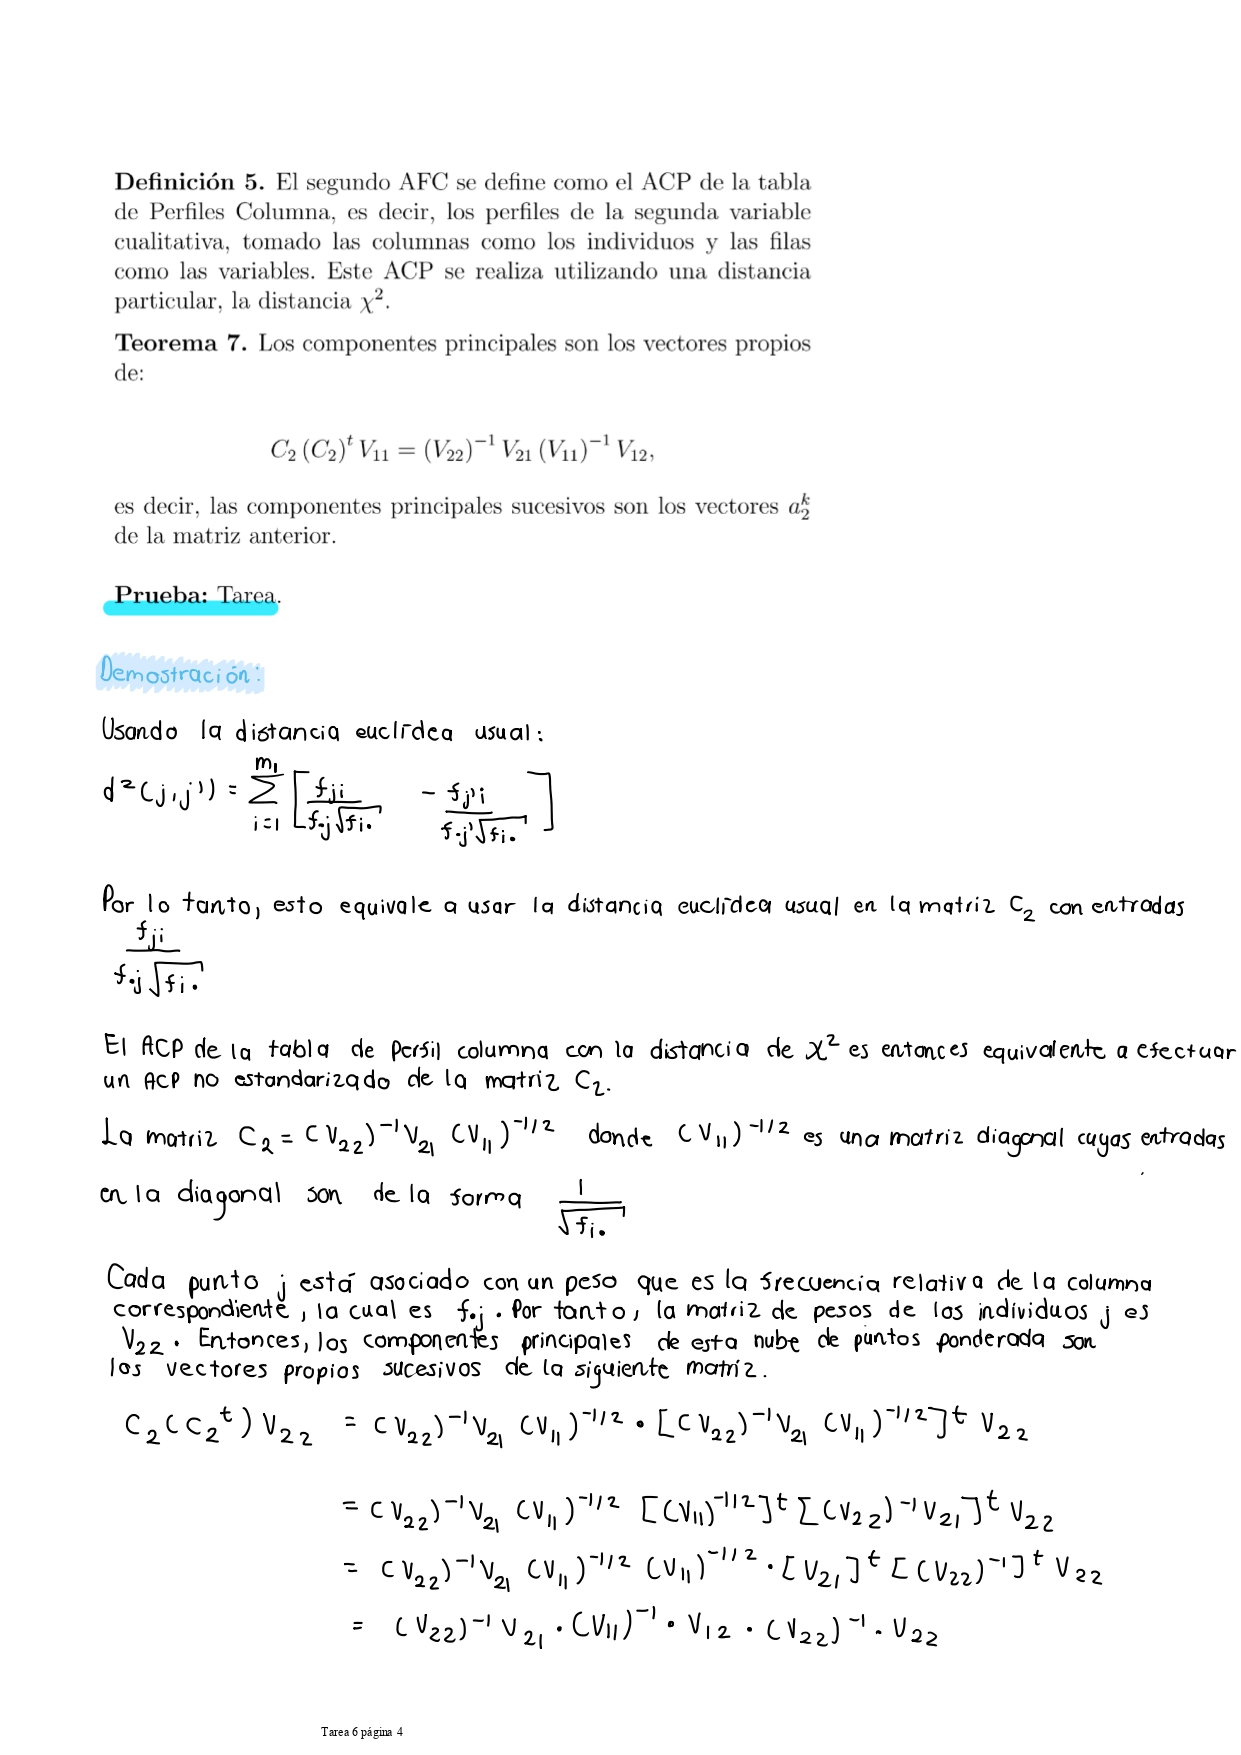 Definición 5. El segundo AFC se define como el ACP de la tabla
de Perfiles Columna, es decir, los perfiles de la segunda variable
cualitativa, tomado las columnas como los individuos y las filas
como las variables. Este ACP se realiza utilizando una distancia
particular, la distancia χ².
Teorema 7. Los componentes principales son los vectores propios
de:
C₂ (C₂)ᵗ V₁₁ = (V₂₂)⁻¹ V₂₁ (V₁₁)⁻¹ V₁₂,
es decir, las componentes principales sucesivos son los vectores a₂ᵏ
de la matriz anterior.
Prueba: Tarea.
Demostración:
Usando la distancia euclídea usual:
d²(j,j') = Σ_{i=1}^{m₁} [ f_{ji} / (f_{·j}√f_{i·}) - f_{j'i} / (f_{·j'}√f_{i·}) ]
Por lo tanto, esto equivale a usar la distancia euclídea usual en la matriz C₂ con entradas
f_{ji} / (f_{·j}√f_{i·})
El ACP de la tabla de perfil columna con la distancia de χ² es entonces equivalente a efectuar
un ACP no estandarizado de la matriz C₂.
La matriz C₂ = (V₂₂)⁻¹V₂₁ (V₁₁)^{-1/2} donde (V₁₁)^{-1/2} es una matriz diagonal cuyas entradas
en la diagonal son de la forma 1 / √f_{i·}
Cada punto j está asociado con un peso que es la frecuencia relativa de la columna
correspondiente, la cual es f_{·j}. Por tanto, la matriz de pesos de los individuos j es
V₂₂. Entonces, los componentes principales de esta nube de puntos ponderada son
los vectores propios sucesivos de la siguiente matriz.
C₂(C₂ᵗ)V₂₂ = (V₂₂)⁻¹V₂₁ (V₁₁)^{-1/2} · [(V₂₂)⁻¹V₂₁ (V₁₁)^{-1/2}]ᵗ V₂₂
= (V₂₂)⁻¹V₂₁ (V₁₁)^{-1/2} [(V₁₁)^{-1/2}]ᵗ [(V₂₂)⁻¹V₂₁]ᵗ V₂₂
= (V₂₂)⁻¹V₂₁ (V₁₁)^{-1/2} (V₁₁)^{-1/2} · [V₂₁]ᵗ [(V₂₂)⁻¹]ᵗ V₂₂
= (V₂₂)⁻¹ V₂₁ · (V₁₁)⁻¹ · V₁₂ · (V₂₂)⁻¹ · V₂₂
Tarea 6 página 4